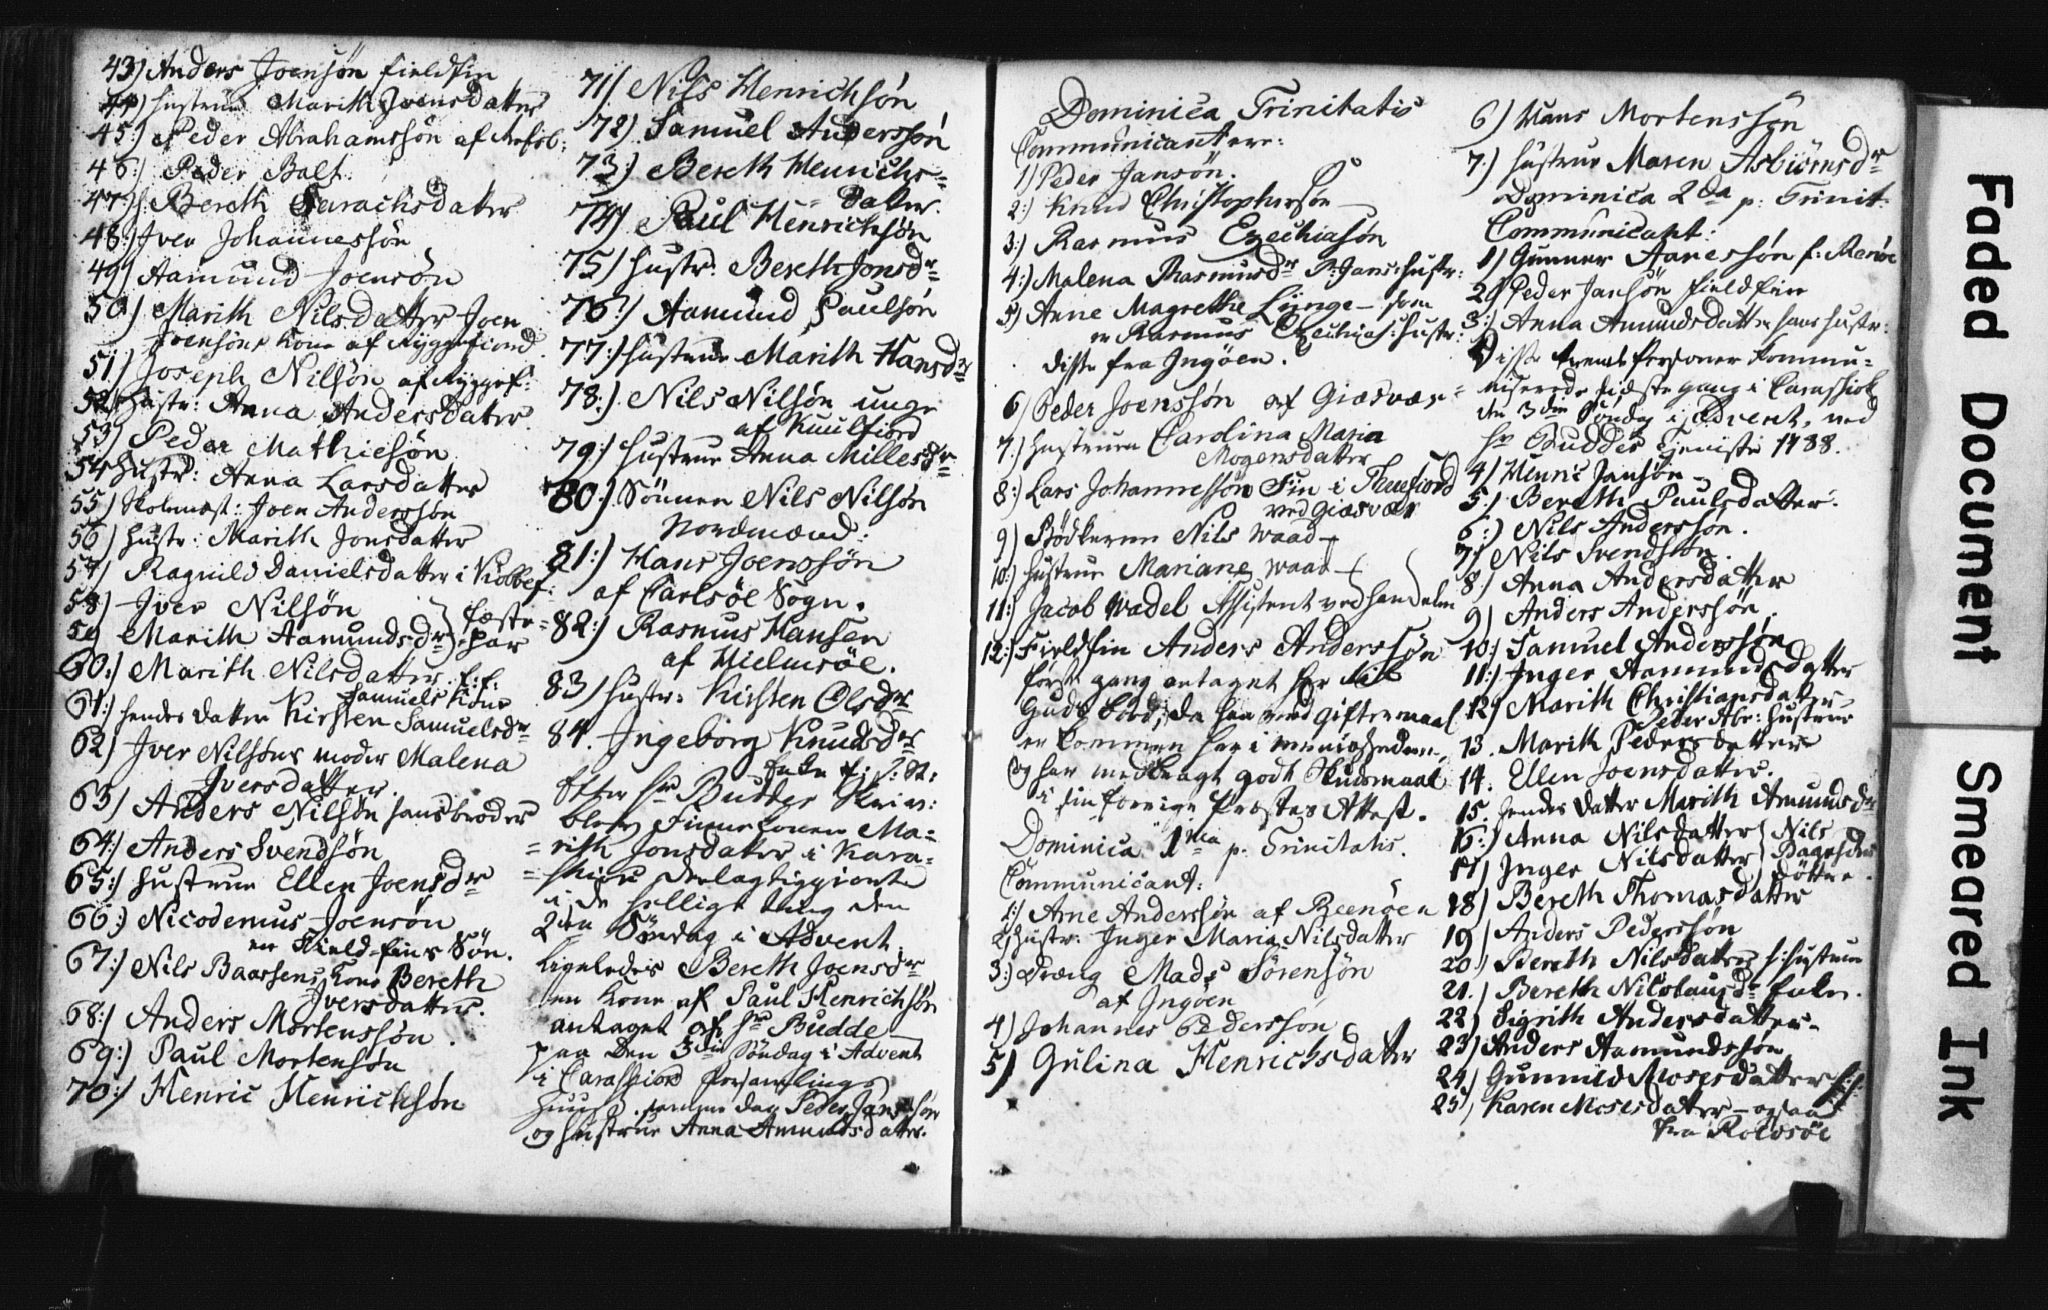 43) Anders Joensøn fieldfin
44) hustrue Marith Joensdatter
45) Peder Abrahamssøn af Refsb:
46) Peder Balt:
47) Bereth Sarachsdatter
48) Iver Johannessøn
49) Aamund Joensøn
50) Marith Nilsdatter Joen
Joensøns Kone af Ryggefiord
51) Joseph Nilsøn af Ryggef:
52) hustr: Anna Andersdatter
53) Peder Mathiesøn
54 hustr: Anna Larsdatter
55) Skolmest: Joen Anderssøn
56) hustr: Marith Jonsdatter
57) Ragnild Danielsdatter i Kobbef:
58) Iver Nilsøn
59 Marith Aamundsdr } fæste par
60:) Marith Nilsdatter. f:f:
Samuels Kone
61:) hendes datter Kirsten Samuelsdr
62) Iver Nilsøns moder Malena
Iversdatter.
63) Anders Nilsøn hans broder
64:) Anders Svendsøn
65:) hustrue Ellen Joensdr
66:) Nicodemus Joensøn
en Field-fins Søn.
67:) Nils Baarsens Kone Bereth
Iversdatter.
68:) Anders Mortenssøn.
69:) Paul Mortensøn
70:) Henric Henrichsøn
71) Nils Henrichsøn
72) Samuel Anderssøn
73:) Bereth Henrichs=
= datter.
74) Paul Henrichsøn
75) hustr: Bereth Jonsdr
76:) Aamund Paulsøn
77:) hustrue Marith Hansdr
78:) Nils Nilsøn unge
af Kuulfiord
79:) hustrue Anna Millesdr
80:) Sønnen Nils Nilsøn
Nordmænd:
81:) Hans Joenssøn
af Carlsöe Sogn.
82:) Rasmus Hansen
af Hielmsöe.
83) hustr: Kirsten Olsdr
84. Ingeborg Knudsdr
Enke f: J: St:
Efter Hr Buddes Skriv:
blev Finnekonen Ma=
= rith Jonsdatter i Kara=
= skior deelagtiggiort
i de hellige ting den
2den Søndag i Advent
Ligeledes Bereth Joensdr
en Kone af Paul Henrichsøn
antaget af Hr Budde
paa Den 3die Søndag i Advent
i Carasjord forsamlings
Huus. samme dag Peder Jansøn
og hustrue Anna Amundsdatter.
Dominica Trinitatis
Communicantere:
1) Peder Jansøn.
2:) Knud Christophersøn
3:) Rasmus Ezechiasøn
4:) Malena Rasmusdr P: Jans: hustr:
5) Anne Magrethe Lynge - som
er Rasmus Ezechias: hustr:
disse fra Ingøen.
6) Peder Joenssøn af Giæsvær
7.) hustruen Carolina Maria
Mogensdatter
8:) Lars Johannessøn Fin i Tuefiord
ved Giæsvær
9) Bødkeren Nils Waad
10:) hustrue Mariane Waad
11:) Jacob Wadel Assistent ved handelen
12:) Fieldfin Anders Anderssøn
første gang antaget her til
Guds bord, da han med Giftermaal
er kommen her i menigheden,
og har medbragt godt Skudsmaal
i sin forrige Præstes Attest.
Dominica 1ma p. Trinitatis.
Communicant:
1:) Arne Anderssøn af Reenøen
2) hustr: Inger Maria Nilsdatter
3:) Dreng Mads Sörensøn
af Ingøen
4) Johannes Pederssøn
5) Gulina Henrichsdatter
6) Hans Mortenssøn
7:) hustrue Maren Asbiörnsdr
Dominica 2da p: Trinit:
Communicant:
1) Gunner Aanessøn f: Renøe
2) Peder Jansøn fieldfin
3:) Anna Amundsdatter hans hustr:
Disse tvende Personer Commu=
niserede sidste gang i Carassiok
den 3die Søndag i Advent, ved
Hr Buddes Tieniste 1788.
4) Henric Jansøn
5:) Bereth Paulsdatter.
6:) Nils Anderssøn.
7) Nils Svendsøn.
8:) Anna Andersdatter
9) Anders Anderssøn.
10:) Samuel Anderssøn
11:) Inger Aamundsdatter
12) Marith Christiansdatter
Peder Abr: hustrue
13. Marith Pedersdatter
14. Ellen Joensdatter.
15. hendes datter Marith Amundsdr
16:) Anna Nilsdatter } Nils
17) Inger Nilsdatter } døttre.
18) Bereth Thomasdatter
19) Anders Pederssøn
20.) Bereth Nilsdatter h: hustrue
21.) Bereth Nicolausdr Enke.
22) Sigrith Andersdatter
23) Anders Aamundssøn
24.) Gunnild Mosesdatter f:f:
25.) Karen Mosesdatter - ogsaa
fra Rolvsöe
Faded Document
Smeared Ink